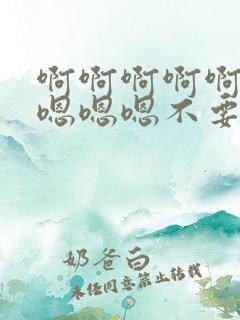 啊啊啊啊啊
嗯嗯嗯不要
奶爸白
未经同意禁止转载